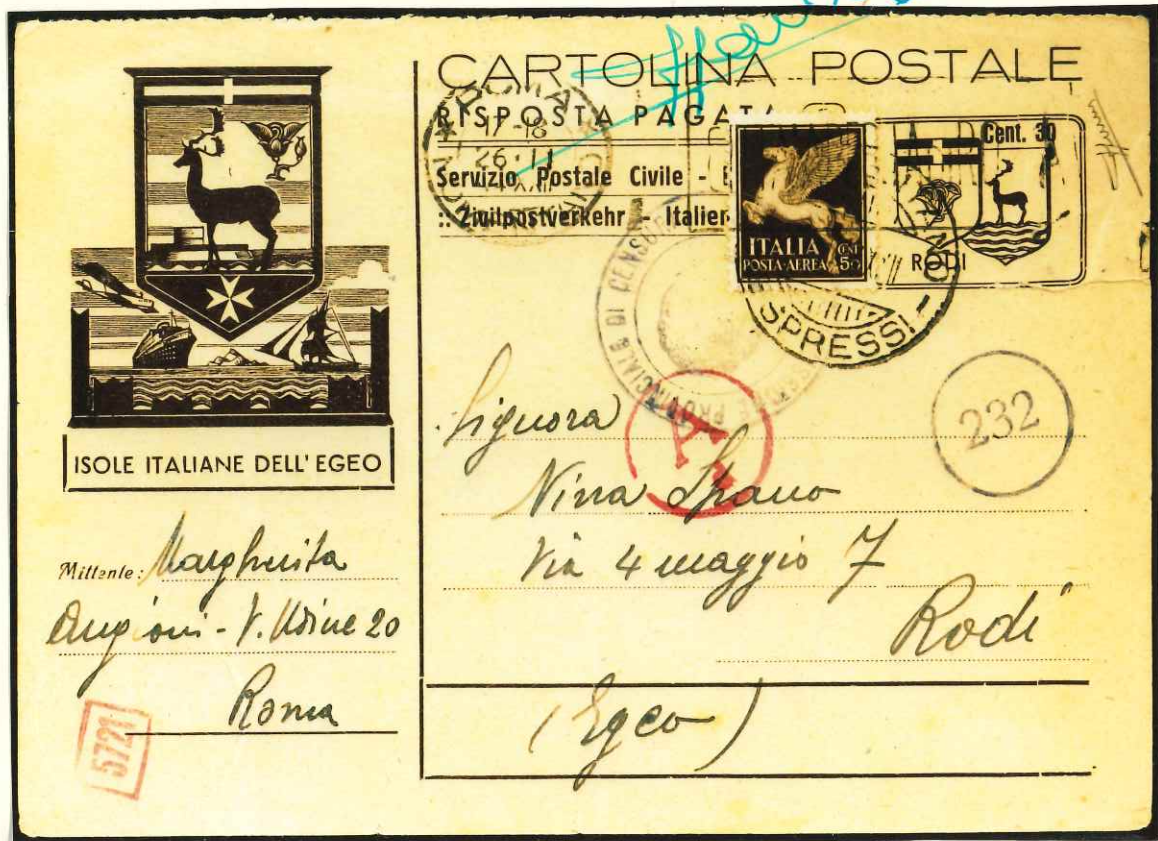 CARTOLINA POSTALE
RISPOSTA PAGATA
Servizio Postale Civile -
:: Zivilpostverkehr - Italien
Cent. 30
RODI
ITALIA
POSTA AEREA CENT 50
ROMA
17-18
26·11
ESPRESSI
232
A
ISOLE ITALIANE DELL'EGEO
Mittente: Margherita
Angioni - V. Udine 20
Roma
5721
Signora
Nina Spano
Via 4 maggio 7
Rodi
(Egeo)